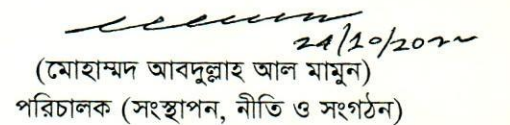 24/10/2022
(মোহাম্মদ আবদুল্লাহ আল মামুন)
পরিচালক (সংস্থাপন, নীতি ও সংগঠন)